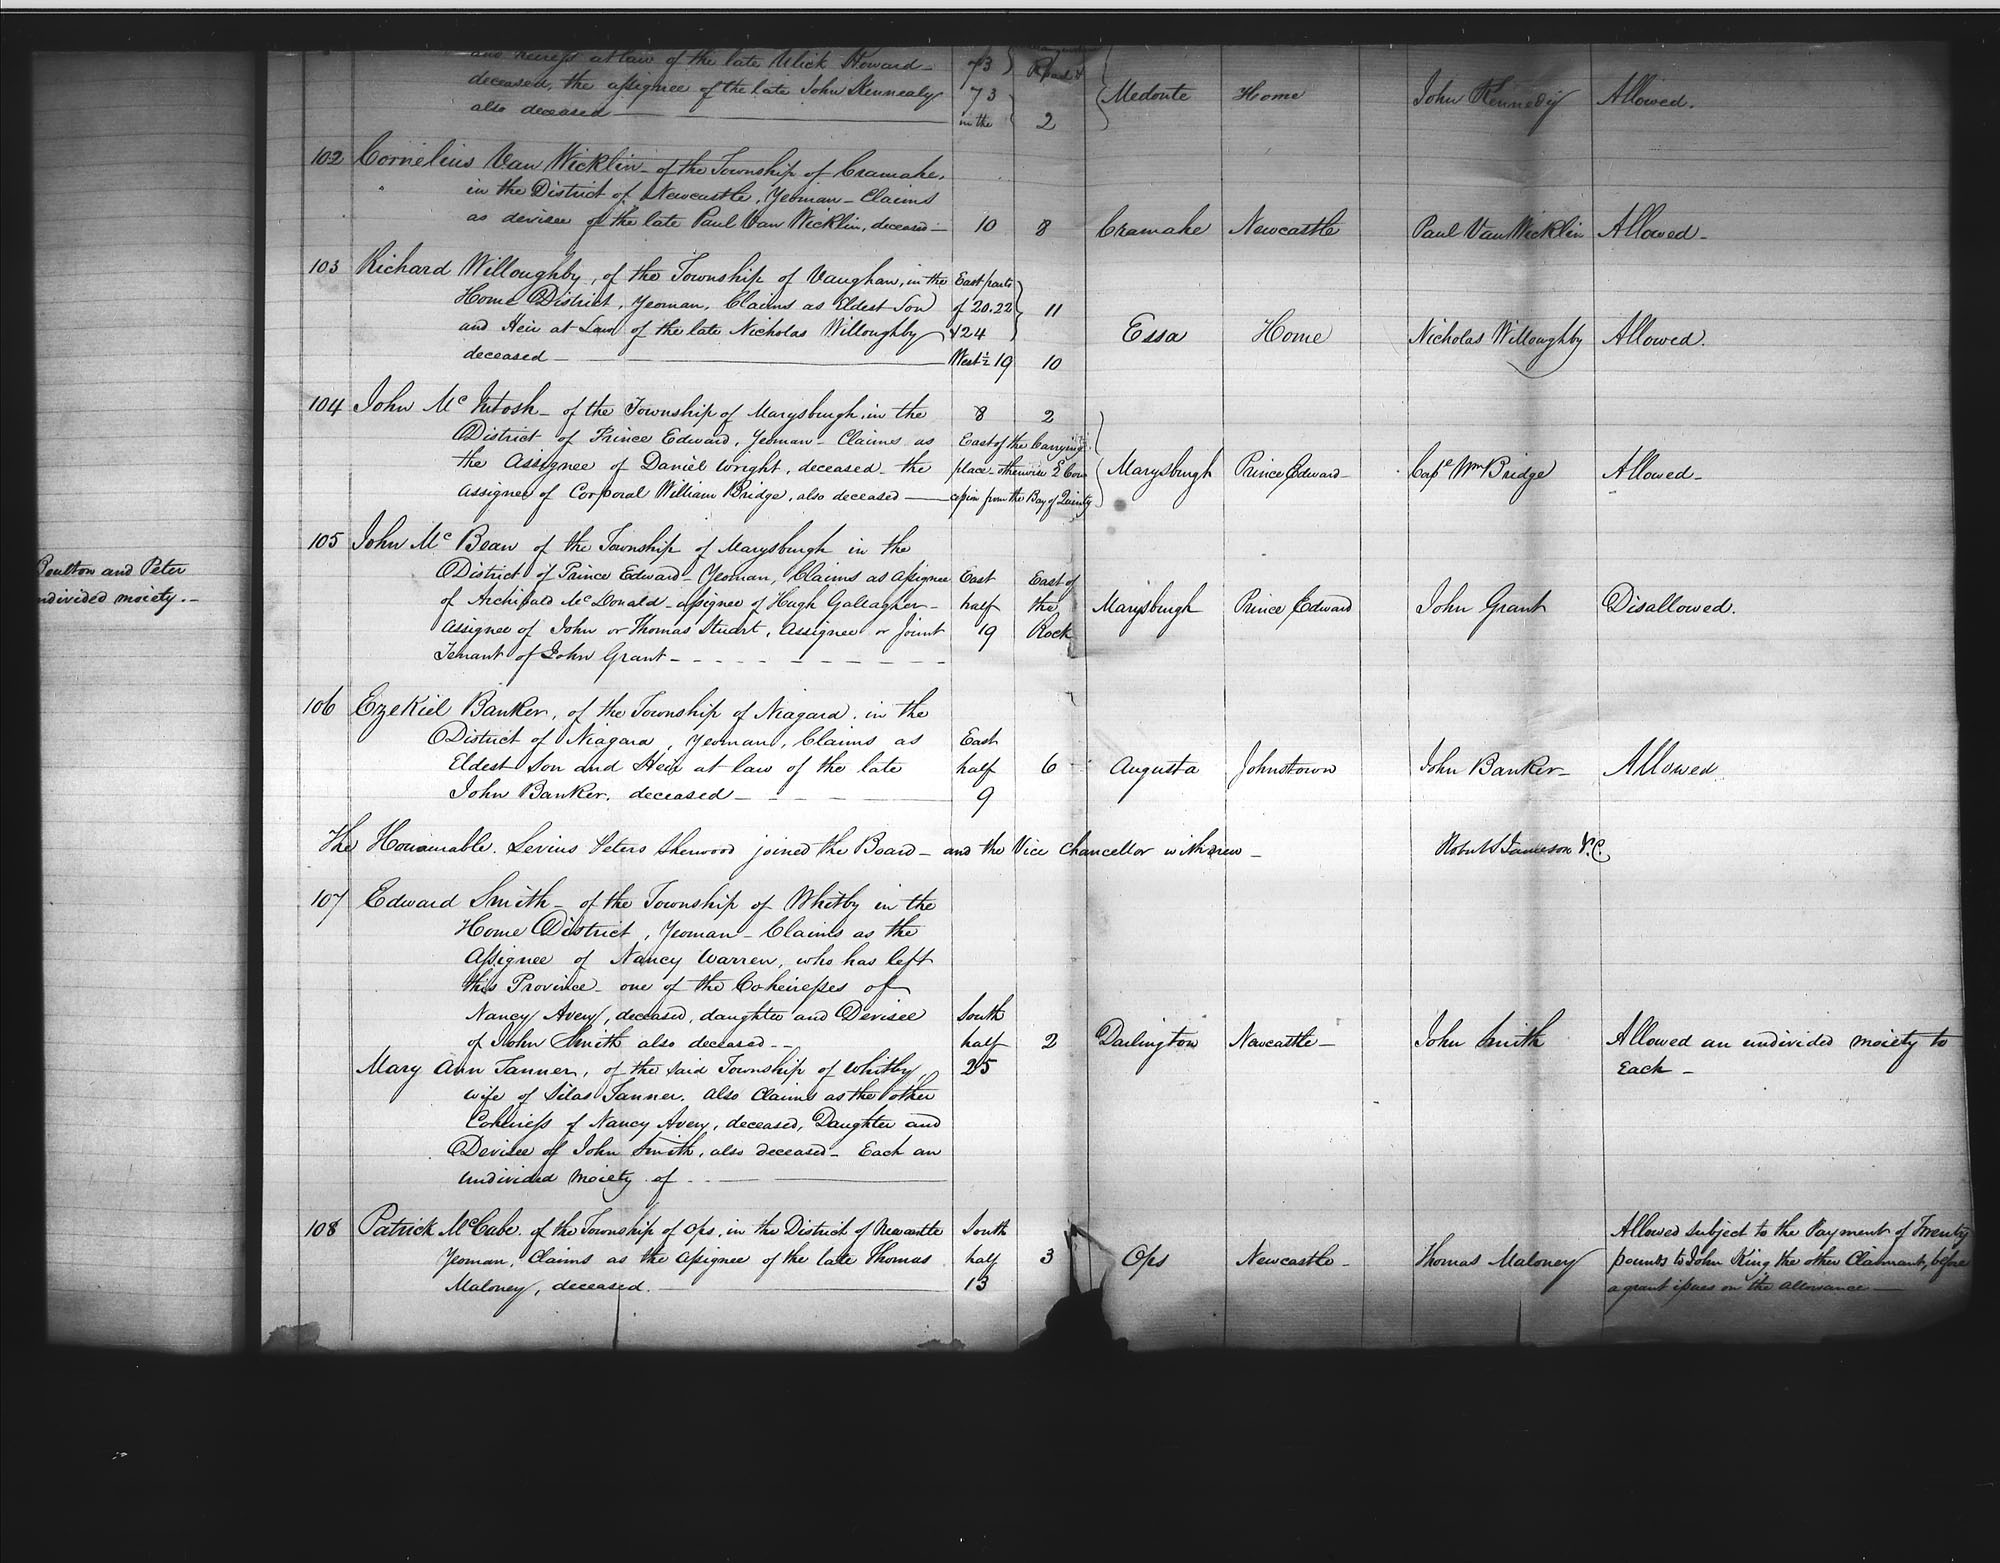 and heiress at law of the late Ulick Howard 73
Road &
deceased, the assignee of the late John Kennealy 73 Medonte Home John Kennedy Allowed.
also deceased in the 2
102 Cornelius Van Wicklin of the Township of Cramahe,
in the District of Newcastle, Yeoman - Claims
as devisee of the late Paul Van Wicklin, deceased - 10 8 Cramahe Newcastle Paul Van Wicklin Allowed -
103 Richard Willoughby, of the Township of Vaughan, in the East parts
Home District, Yeoman, Claims as Eldest Son of 20.22 11
and Heir at Law of the late Nicholas Willoughby &24 Essa Home Nicholas Willoughby Allowed.
deceased - West ½ 19 10
104 John Mc Intosh - of the Township of Marysburgh, in the 8 2
District of Prince Edward, Yeoman - Claims as East of the Carrying
the Assignee of Daniel Wright, deceased - the place - otherwise 2 Con Marysburgh Prince Edward - William Bridge Allowed -
Assignee of Corporal William Bridge, also deceased - cession from the Bay of Quinty
105 John Mc Bean of the Township of Marysburgh in the
District of Prince Edward - Yeoman, Claims as Assignee East East of
of Archibald McDonald - assignee of Hugh Gallagher - half the Marysburgh Prince Edward John Grant Disallowed.
Assignee of John or Thomas Stuart, Assignee or Joint 19 Rock
Tenant of John Grant -
Boulton and Peter
undivided moiety. -
106 Ezekiel Banker, of the Township of Niagara, in the
District of Niagara, Yeoman, Claims as East
Eldest Son and Heir at law of the late half 6 Augusta Johnstown John Banker - Allowed
John Banker, deceased - 9
The Honourable Levius Peters Sherwood joined the Board - and the Vice Chancellor withdrew - Robert S Jameson V.C.
107 Edward Smith - of the Township of Whitby in the
Home District, Yeoman - Claims as the
Assignee of Nancy Warren, who has left
this Province - one of the Coheiresses of
Nancy Avery, deceased, daughter and Devisee South
of John Smith also deceased - half 2 Darlington Newcastle - John Smith Allowed an undivided moiety to
Mary Ann Tanner, of the said Township of Whitby, 25 Each -
wife of Silas Tanner, also Claims as the other
Coheiress of Nancy Avery, deceased, Daughter and
Devisee of John Smith, also deceased - Each an
undivided moiety of -
108 Patrick McCabe, of the Township of Ops, in the District of Newcastle South Allowed subject to the Payment of Twenty
Yeoman, Claims as the Assignee of the late Thomas half 3 Ops Newcastle - Thomas Maloney pounds to John King the other Claimant, before
Maloney, deceased. 13 a grant issues on the allowance -